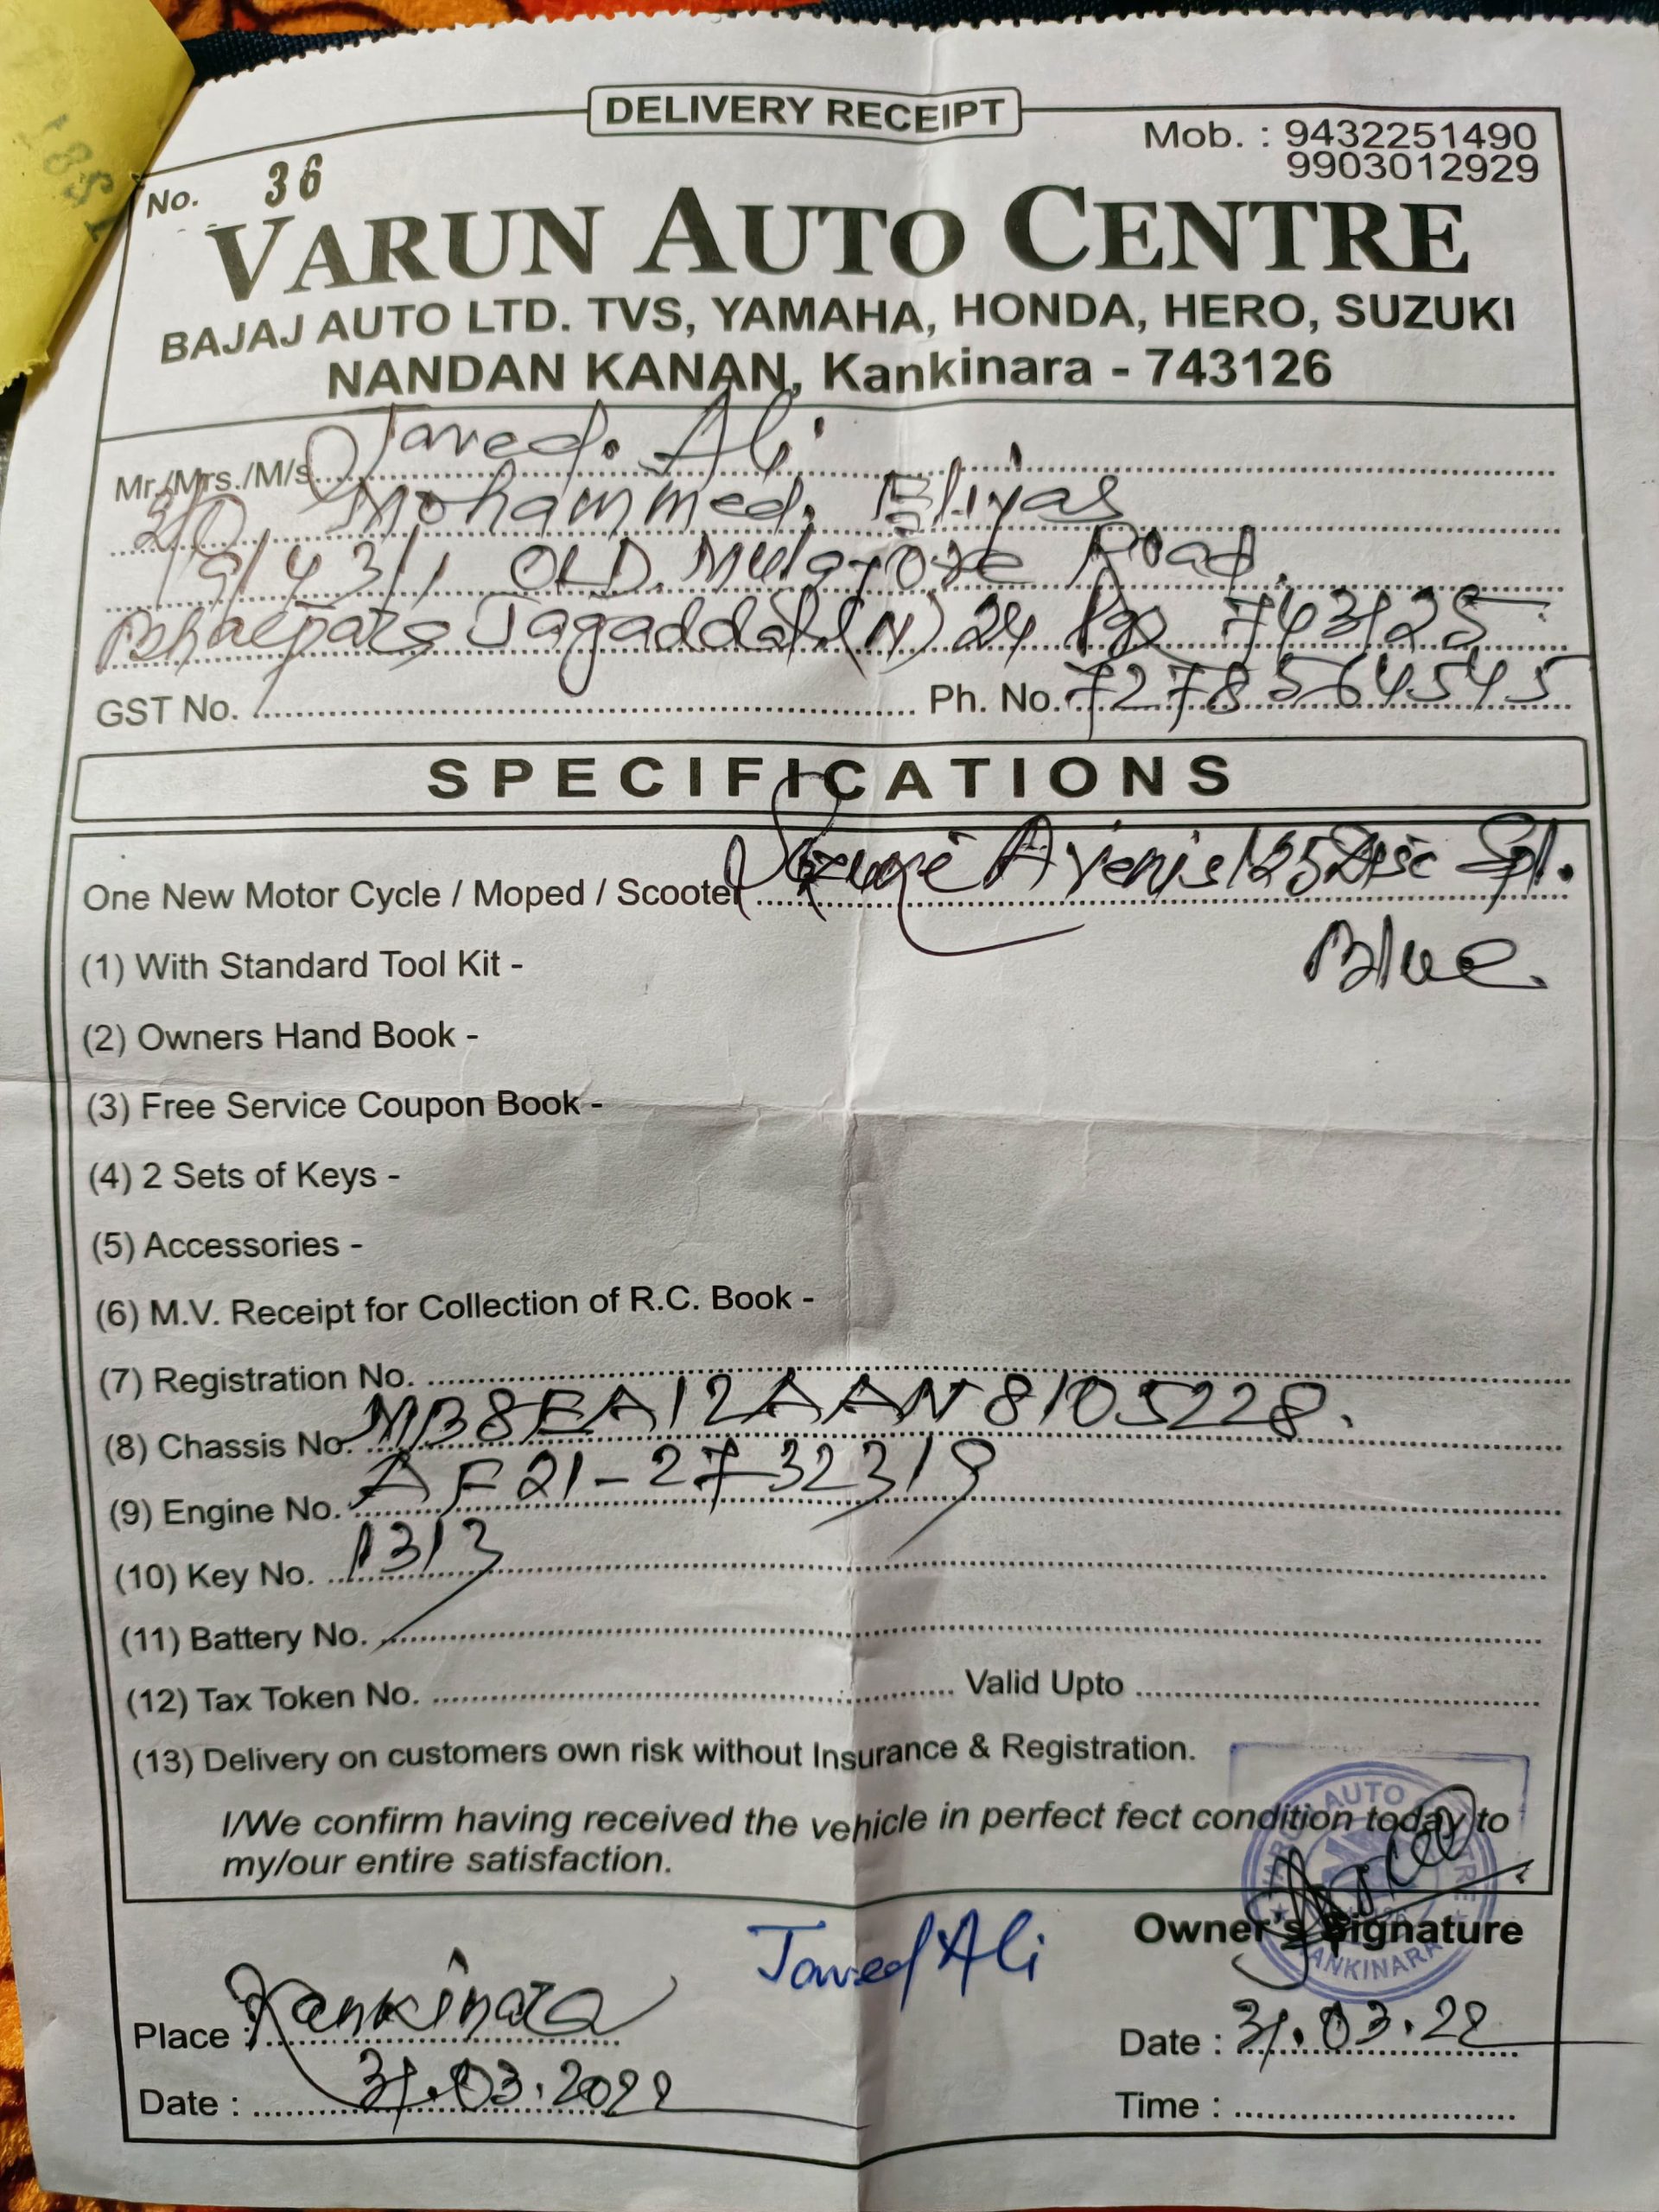 1581
DELIVERY RECEIPT
Mob. : 9432251490
9903012929
No. 36
VARUN AUTO CENTRE
BAJAJ AUTO LTD. TVS, YAMAHA, HONDA, HERO, SUZUKI
NANDAN KANAN, Kankinara - 743126
Mr./Mrs./M/s. Javed. Ali
S/O Mohammed. Eliyas
OLD. Road,
Jagaddal (N) 24 743125
GST No. Ph. No. 7278564545
SPECIFICATIONS
One New Motor Cycle / Moped / Scooter Avenis 125 Disc Spl.
Blue.
(1) With Standard Tool Kit -
(2) Owners Hand Book -
(3) Free Service Coupon Book -
(4) 2 Sets of Keys -
(5) Accessories -
(6) M.V. Receipt for Collection of R.C. Book -
(7) Registration No.
(8) Chassis No. MB8EA12AAN8105228.
(9) Engine No. AF21-2732319
(10) Key No. 1313
(11) Battery No.
(12) Tax Token No. Valid Upto
(13) Delivery on customers own risk without Insurance & Registration.
I/We confirm having received the vehicle in perfect fect condition today to
my/our entire satisfaction.
VARUN AUTO CENTRE
KANKINARA
Javed Ali
Owner's Signature
Place : Kankinara
Date : 31.03.22
Date : 31.03.2022
Time :